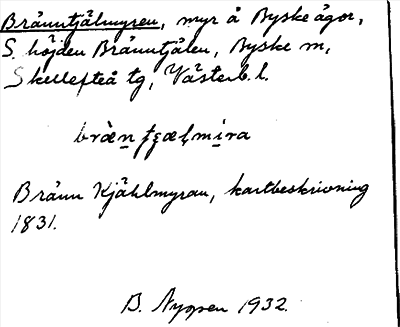 Bränntjälmyren, myr å Byske ägor,
S. höjden Bränntjälen, Byske sn,
Skellefteå tg, Västerb. l.
Bränn Kjählmyran, kartbeskrivning
1831.
B. Nygren 1932.